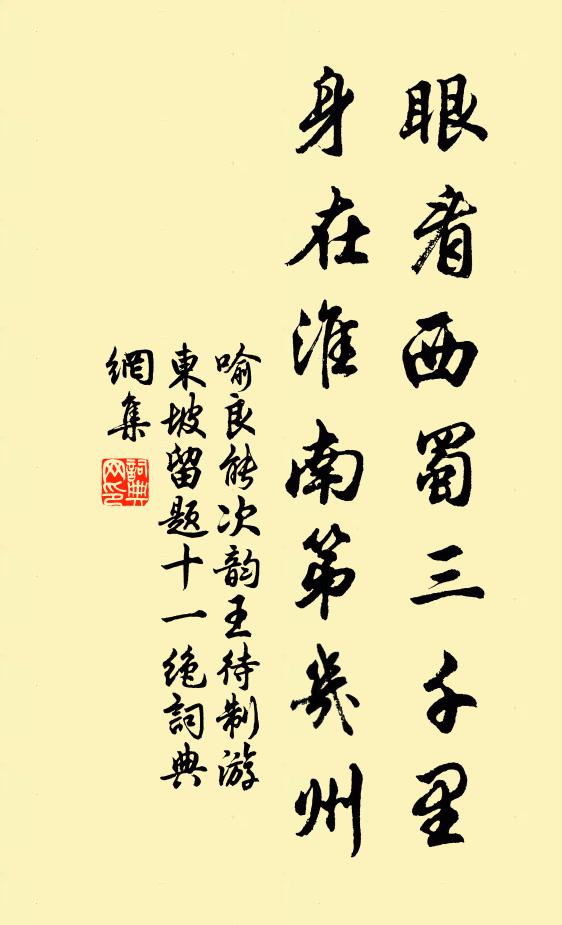 眼看西蜀三千里
身在淮南第幾州
喻良能次韵王待制游
東坡留题十一绝詞典
網集
詞典
网印